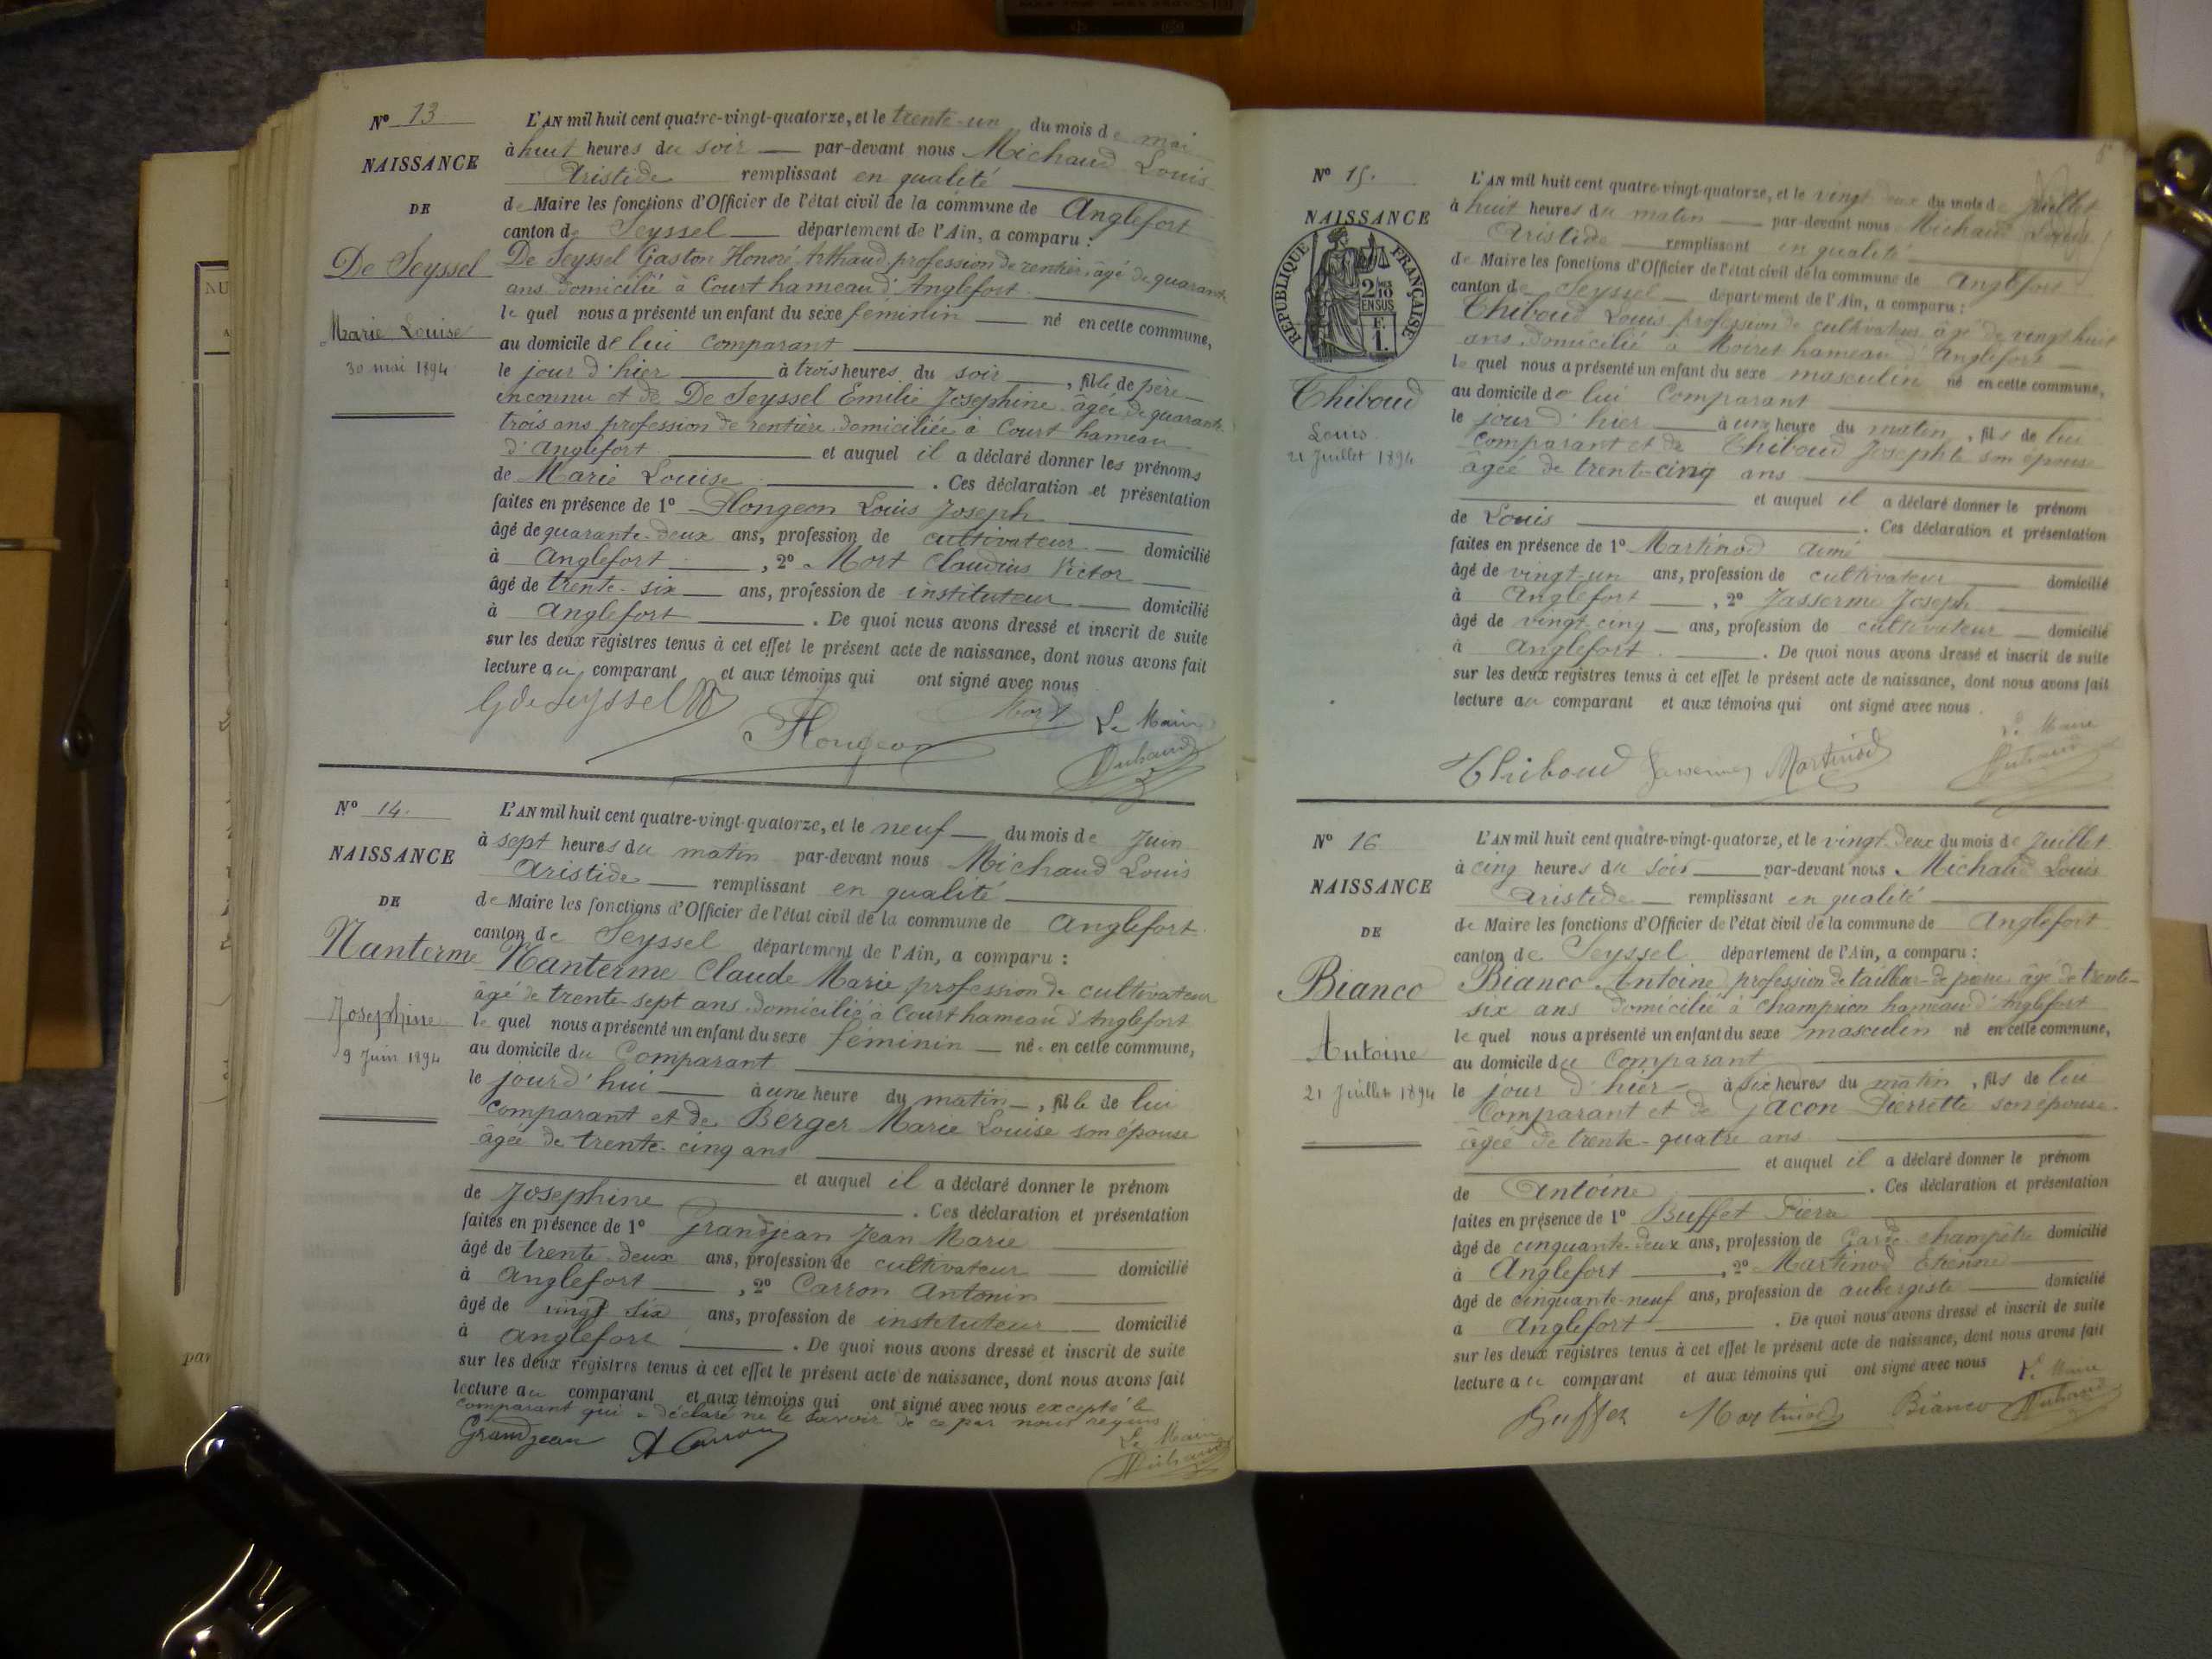 Nº 13
NAISSANCE
DE
De Seyssel
Marie Louise
30 mai 1894
L'AN mil huit cent quatre-vingt-quatorze, et le trente-un du mois de mai
à huit heures du soir par-devant nous Michaud Louis
Aristide remplissant en qualité
de Maire les fonctions d'Officier de l'état civil de la commune de Anglefort
canton de Seyssel département de l'Ain, a comparu :
De Seyssel Gaston Honoré Arthaud profession de rentier, âgé de quarante
ans domicilié à Court hameau d'Anglefort
le quel nous a présenté un enfant du sexe féminin né en cette commune,
au domicile de lui comparant
le jour d'hier à trois heures du soir, fille de père
inconnu et de De Seyssel Emilie Josephine âgée de quarante
trois ans profession de rentière domiciliée à Court hameau
d'Anglefort et auquel il a déclaré donner les prénoms
de Marie Louise. Ces déclaration et présentation
faites en présence de 1º Flongeon Louis Joseph
âgé de quarante-deux ans, profession de cultivateur domicilié
à Anglefort, 2º Mort Claudius Victor
âgé de trente-six ans, profession de instituteur domicilié
à Anglefort. De quoi nous avons dressé et inscrit de suite
sur les deux registres tenus à cet effet le présent acte de naissance, dont nous avons fait
lecture au comparant et aux témoins qui ont signé avec nous
G de Seyssel Flongeon Mort Le Maire
Nº 14.
NAISSANCE
DE
Nanterme
Josephine
9 Juin 1894
L'AN mil huit cent quatre-vingt-quatorze, et le neuf du mois de Juin
à sept heures du matin par-devant nous Michaud Louis
Aristide remplissant en qualité
de Maire les fonctions d'Officier de l'état civil de la commune de Anglefort
canton de Seyssel département de l'Ain, a comparu :
Nanterme Claude Marie profession de cultivateur
âgé de trente-sept ans domicilié à Court hameau d'Anglefort
le quel nous a présenté un enfant du sexe féminin né en cette commune,
au domicile du Comparant
le jourd'hui à une heure du matin, fille de lui
comparant et de Berger Marie Louise son épouse
âgée de trente-cinq ans
et auquel il a déclaré donner le prénom
de Josephine. Ces déclaration et présentation
faites en présence de 1º Grandjean Jean Marie
âgé de trente-deux ans, profession de cultivateur domicilié
à Anglefort, 2º Carron Antonin
âgé de vingt six ans, profession de instituteur domicilié
à Anglefort. De quoi nous avons dressé et inscrit de suite
sur les deux registres tenus à cet effet le présent acte de naissance, dont nous avons fait
lecture au comparant et aux témoins qui ont signé avec nous excepté le
comparant qui a déclaré ne le savoir de ce par nous requis
Grandjean A Carron Le Maire
Nº 15.
NAISSANCE
RÉPUBLIQUE FRANÇAISE
2/10
EN SUS
F.
1.
Thiboud
Louis
21 Juillet 1894
L'AN mil huit cent quatre-vingt-quatorze, et le vingt deux du mois de Juillet
à huit heures du matin par-devant nous Michaud Louis
Aristide remplissant en qualité
de Maire les fonctions d'Officier de l'état civil de la commune de Anglefort
canton de Seyssel département de l'Ain, a comparu :
Thiboud Louis profession de cultivateur âgé de vingt huit
ans domicilié à Moiret hameau d'Anglefort
le quel nous a présenté un enfant du sexe masculin né en cette commune,
au domicile de lui Comparant
le jour d'hier à une heure du matin, fils de lui
comparant et de Thiboud Josephte son épouse
âgée de trente-cinq ans
et auquel il a déclaré donner le prénom
de Louis. Ces déclaration et présentation
faites en présence de 1º Martinod Aimé
âgé de vingt-un ans, profession de cultivateur domicilié
à Anglefort, 2º Jasserme Joseph
âgé de vingt-cinq ans, profession de cultivateur domicilié
à Anglefort. De quoi nous avons dressé et inscrit de suite
sur les deux registres tenus à cet effet le présent acte de naissance, dont nous avons fait
lecture au comparant et aux témoins qui ont signé avec nous.
Thiboud Martinod Le Maire
Nº 16
NAISSANCE
DE
Bianco
Antoine
21 Juillet 1894
L'AN mil huit cent quatre-vingt-quatorze, et le vingt-deux du mois de Juillet
à cinq heures du soir par-devant nous Michaud Louis
Aristide remplissant en qualité
de Maire les fonctions d'Officier de l'état civil de la commune de Anglefort
canton de Seyssel département de l'Ain, a comparu :
Bianco Antoine profession de tailleur de pierre âgé de trente-
six ans domicilié à Champrion hameau d'Anglefort
le quel nous a présenté un enfant du sexe masculin né en cette commune,
au domicile du Comparant
le jour d'hier à six heures du matin, fils de lui
Comparant et de Jacon Pierrette son épouse
âgée de trente-quatre ans
et auquel il a déclaré donner le prénom
de Antoine. Ces déclaration et présentation
faites en présence de 1º Buffet Pierre
âgé de cinquante-deux ans, profession de Garde champêtre domicilié
à Anglefort, 2º Martinod Etienne
âgé de cinquante-neuf ans, profession de aubergiste domicilié
à Anglefort. De quoi nous avons dressé et inscrit de suite
sur les deux registres tenus à cet effet le présent acte de naissance, dont nous avons fait
lecture au comparant et aux témoins qui ont signé avec nous
Buffet Martinod Bianco Le Maire